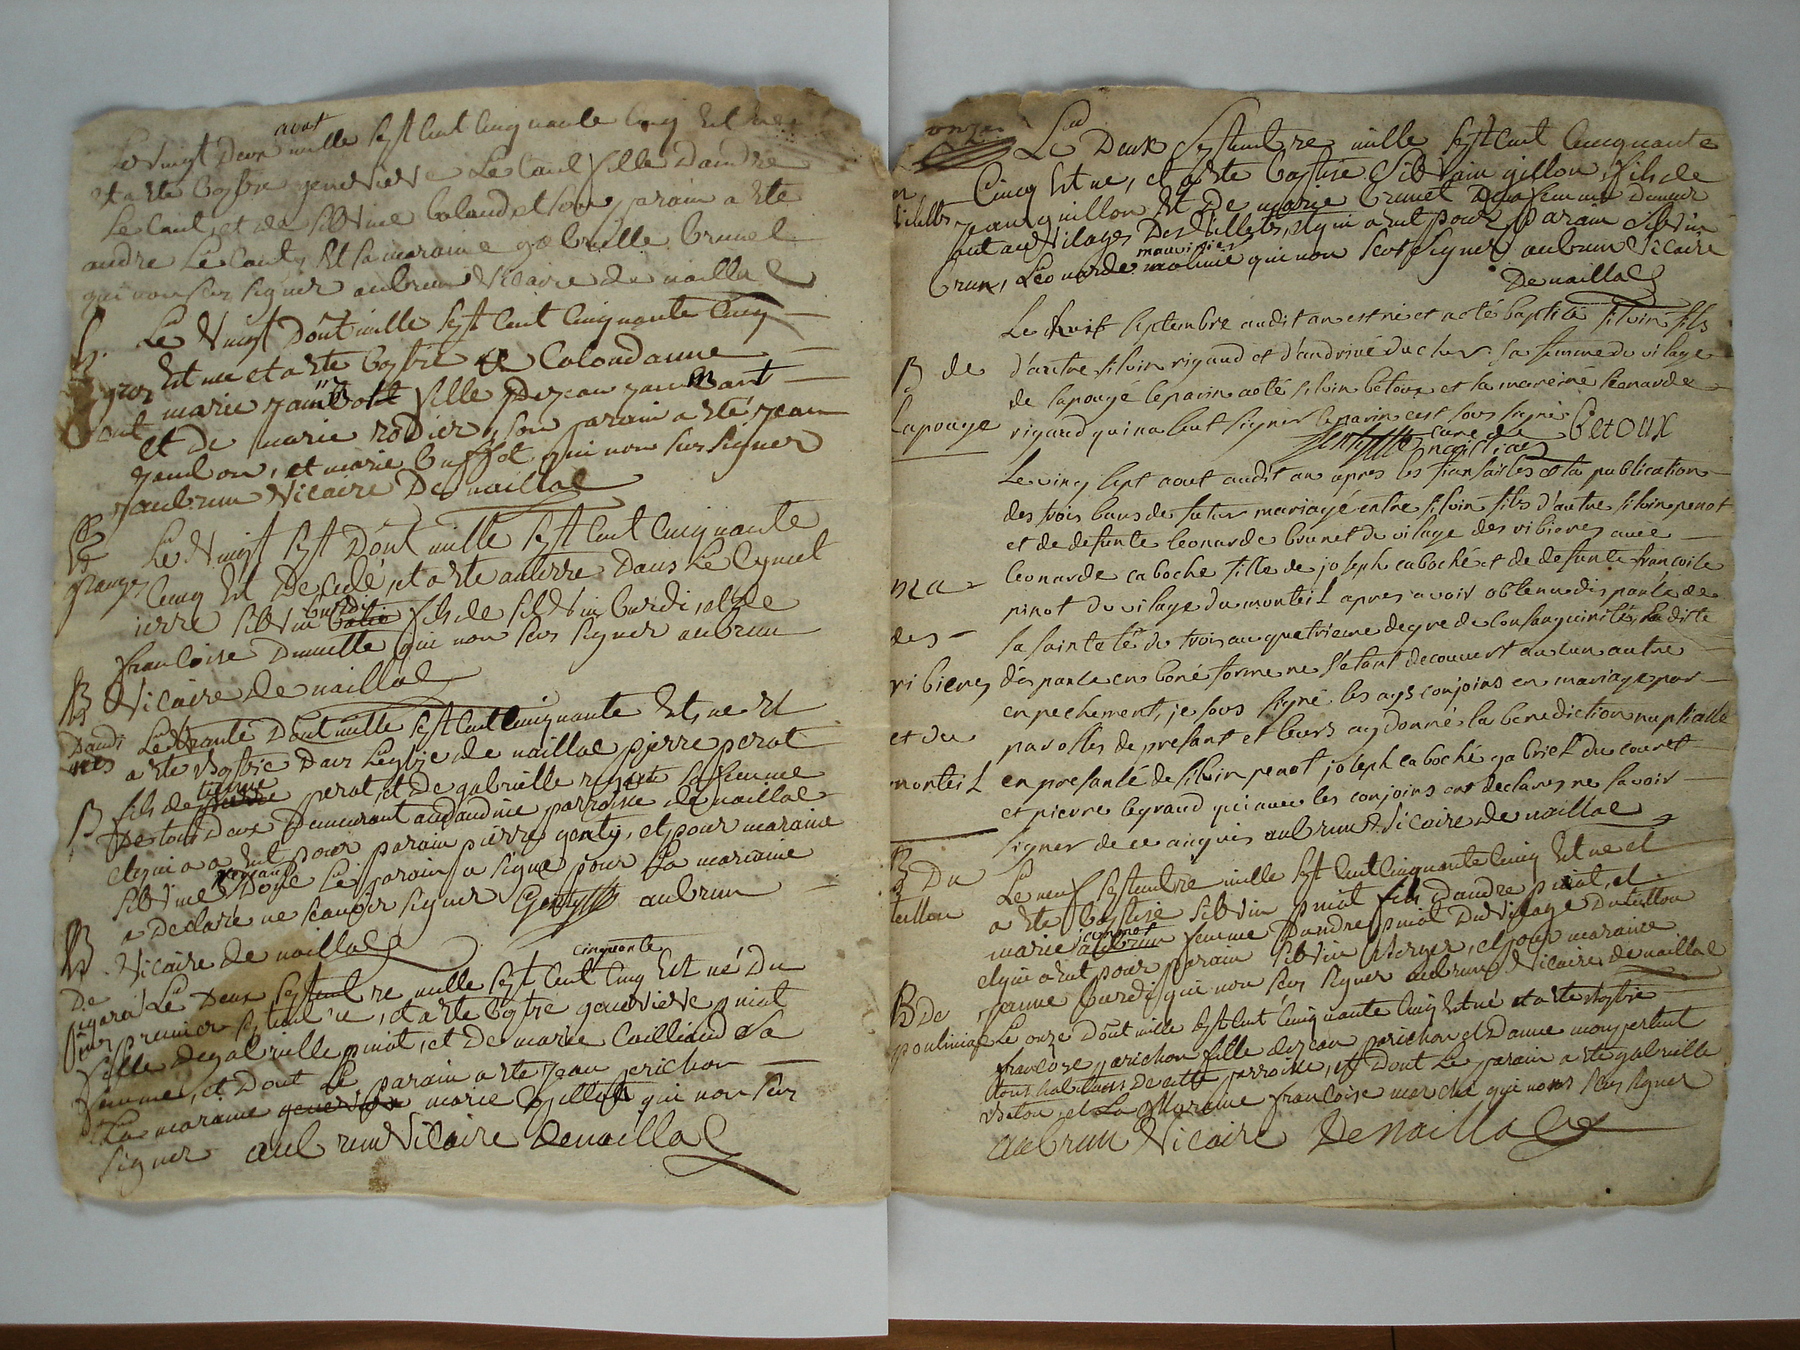 aout
Le vingt deux mille sept cent cinquante cinq est nee
et a été baptisé genevieve Le Cant fille d'andre
Le Cant, et de silvine baland et son parain a été
andre Le Cant, et sa maraine gabrielle brunet
qui non sçus signer aubrun vicaire de naillac
B. Le vingt d'out mille sept cent cinquante cinq
est ne et a été baptisé Colondanne
marie fille de jean
et de marie rodier, son parain a été jean
et marie buffot, qui non sçus signer
aubrun vicaire De naillac
Le vingt sept d'out mille sept cent cinquante
granges cinq est decedé, et a été anterré Dans Le Cymet
burdi
ierre silvin fils de silvin burdi, et de
francoise qui non sçus signer aubrun
B vicaire de naillac
Le trante d'out mille sept cent cinquante est ne et
a été baptisé dans l'eglise de naillac pierre perot
fils de perot, et de gabrielle sa femme
B de tout deux demeurant audandine parroisse de naillac
et qui a a eut pour parain pierre genty, et pour maraine
silvine dont Le parain a signé pour La maraine
a Declaré ne scauoir signer Genty aubrun
B. vicaire de naillac
cinquante
De Le Deux septembre mille sept cent cinq est né du
premier septembre, et a été baptisé genevieve pinot
fille de gabrielle pinot, et De marie Cailliaud sa
femme, et dont Le parain a été jean perichon
La maraine marie qui non sçus
signer aubrun vicaire denaillac
onze
Le Deux septembre mille sept cent cinquante
cinq est ne, et a été baptisé silvain gillon, fils de
jean guillon et De marie brunet De sa femme demeur
ant au vilages Des villets, et qui a eut pour parain silvin
brun, Leonarde qui non sçus signer aubrun vicaire
Denaillac
Le huit septembre audit an est né et a eté baptisé silvin fils
B de d'autre silvin rigaud et d'andrivé ducher sa femme du vilage
de lapougé le parin a eté silvin betoux et la mareine leonarde
lapouge rigaud qui na seut signer le parin cest sous signé betoux
curé de naillac
Le vingt sept aout audit an apres les fiansailles et la publication
des trois bans de futur mariage entre silvin fils d'autre silvin penot
et de defunte leonarde brunet du vilage des ribieres avec
ma- leonarde caboche fille de joseph caboché et de defunte francoise
pinot du vilage du monteil apres avoir obtenu dispance de
des- sa sainteté du trois au quatrieme degre de consanguinité, la dite
ribieres dispance en boné forme ne s'etant decouvert aucun autre
enpechement, je sous signé les ays conjoins en mariage par
et du parolles de presant et leurs ay donné la benediction nuptialle
monteil en presance de silvin penot joseph caboché gabriel du couret
et pierre legrand qui avec les conjoins ont declarés ne savoir
signer de ce anquis aubrun vicaire de naillac
B Du Le neuf septembre mille sept cent cinquante cinq est ne et
tuillon a été baptisé silvin pinot fils d'andre pinot, et
marie femme d'andre pinot Du vilage Dutuillon
et qui a eut pour parain silvin verger, et pour maraine
jeanne burdi, qui non sçus signer aubrun vicaire de naillac
B De Le onze d'out mille sept cent cinquante cinq est né et a été baptisé
poulignac francoise perichon fille de jean perichon et d'anne
tous habitans de cette parroisse, et dont Le parain a été gabrielle
et La Maraine francoise qui nons sçus signer
aubrun vicaire Denaillac